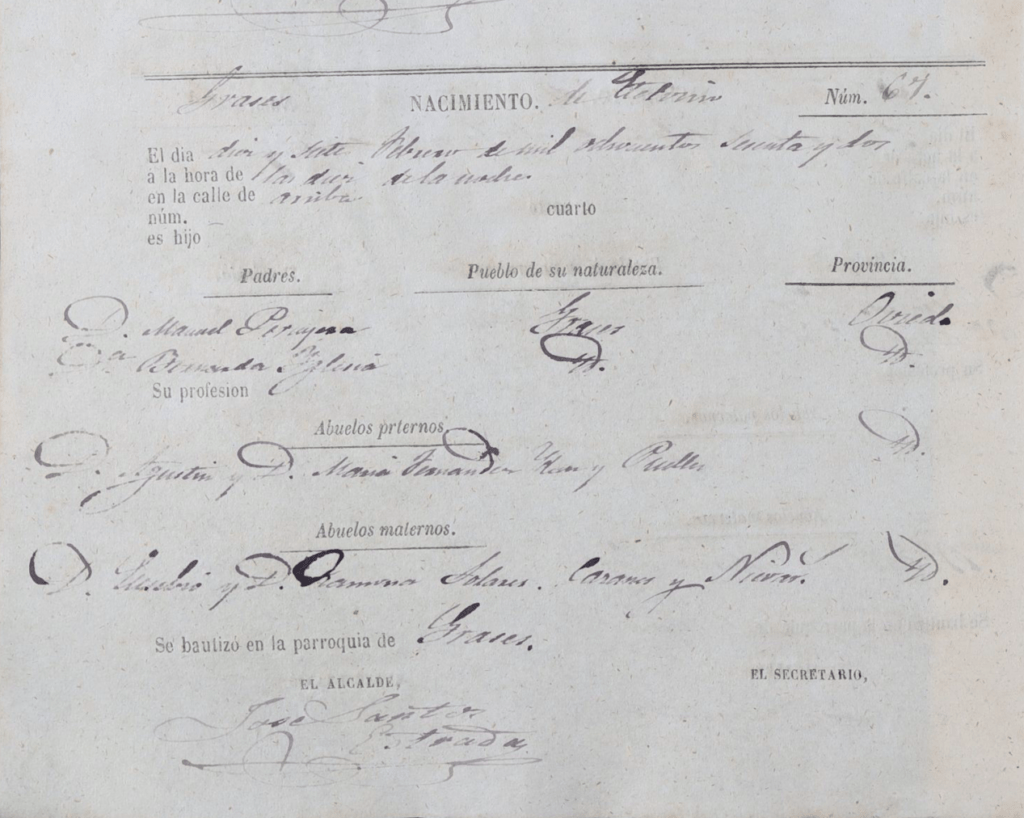 Grases NACIMIENTO. de Etelvino Núm. 67.
El dia diez y siete Febrero de mil ochocientos sesenta y dos
á la hora de las diez de la noche
en la calle de arriba
núm. cuarto
es hijo
Padres. Pueblo de su naturaleza. Provincia.
D. Manuel Grases Oviedo
Dª Bernarda Yglesia Yd. Yd.
Su profesion
Abuelos prternos
D. Agustin y D. Maria Fernandez y Yd.
Abuelos maternos.
D. Eusebio y D. Ramona Solares. Caranes y Yd.
Se bautizó en la parroquia de Grases.
EL ALCALDE, EL SECRETARIO,
José Santos
Estrada